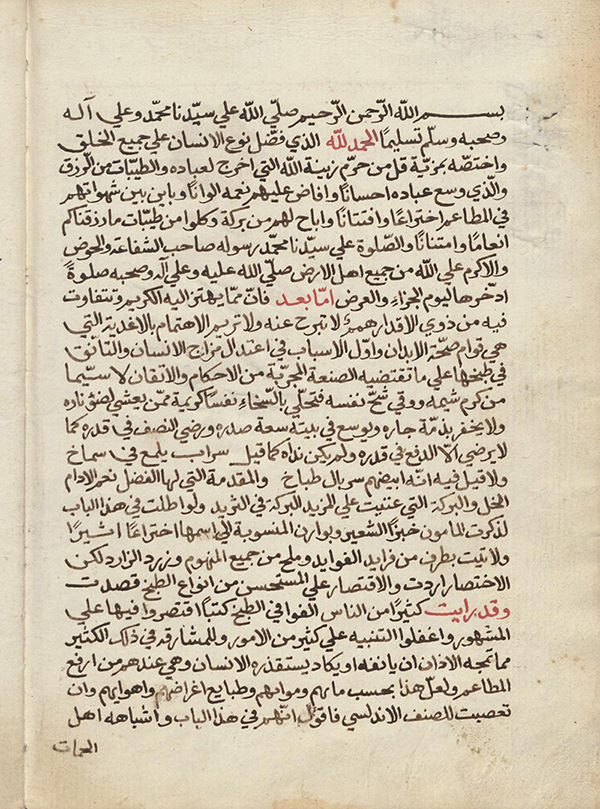 بسم الله الرّحمن الرّحيم صلّي الله علي سيّدنا محمّد وعلي آله
وصحبه وسلّم تسليمًا الحمد لله الذي فضّل نوع الانسان علي جميع الخلق
واختصّه بمزيّة قل من حرّم زينة الله التي اخرج لعباده والطيّبات من الرزق
والّذي وسع عباده احسانًا وافاض عليهم نعمه الوانًا وباين بين شهواتهم
في المطاعم اختراعًا وافتنانًا واباح لهم من بركة وكلوا من طيّبات ما رزقناكم
انعامًا وامتنانًا والصّلوة علي سيّدنا محمّد رسوله صاحب الشفاعة والحوض
والاكرم علي الله من جميع اهل الارض صلّي الله عليه وعلي آله وصحبه صلوةً
ادخرها ليوم الجزاء والعرض امّا بعد فانّ ممّا يهتزّ اليه الكريم وتتفاوت
فيه من ذوي الاقدار همم لا تبرح عنه ولا تريم الاهتمام بالاغذية التي
هي قوام صحّة الابدان واوّل الاسباب في اعتدال مزاج الانسان والتانّق
في طبخها علي ما تقتضيه الصنعة المجرّبة من الاحكام والاتقان لا سيّما
من كرم شيمه ووقي شحّ نفسه فتحلّي بالسّخاء نفسًا كريمة ممّن يعشي لضوّ ناره
ولا يخفر بذمّة جاره ويوسع في بيته سعة صدره ورضي النصف في قدره كما
لا يرضي الّا الدفع في قدره ولم يكن نداه كما قيل سراب يلمع في سماخ
ولا قيل فيه انّه ابيضهم سربال طباخ والمقدمة التي لها الفضل نعم الادام
الخل والبركة التي عتبت علي المزيد البركة في الثريد ولو اطلت في هذا الباب
لذكرت للمامون خبزًا الشعير وبوارن المنسوبة الي اسمها اختراعًا اشيرًا
ولاتيت بطرف من فرايد الفوايد وملح من جميع المنهوم وزرد الزارد لكن
الاختصار اردت والاقتصار علي المستحسن من انواع الطبخ قصدت
وقد رايت كثيرًا من الناس الفوا في الطبخ كتبًا اقتصروا فيها علي
المشهور واغفلوا التنبيه علي كثير من الامور وللمشارقه في ذلك الكثير
مما تمجه الاذان ان يانفه او يكاد يستقذره الانسان وهي عندهم من ارفع
المطاعم ولعلّ هذا بحسب مايهم وموايهم وطبايع اغراضهم واهوايهم وان
تعصبت للصنف الاندلسي فاقول انّهم في هذا الباب واشباهه اهل